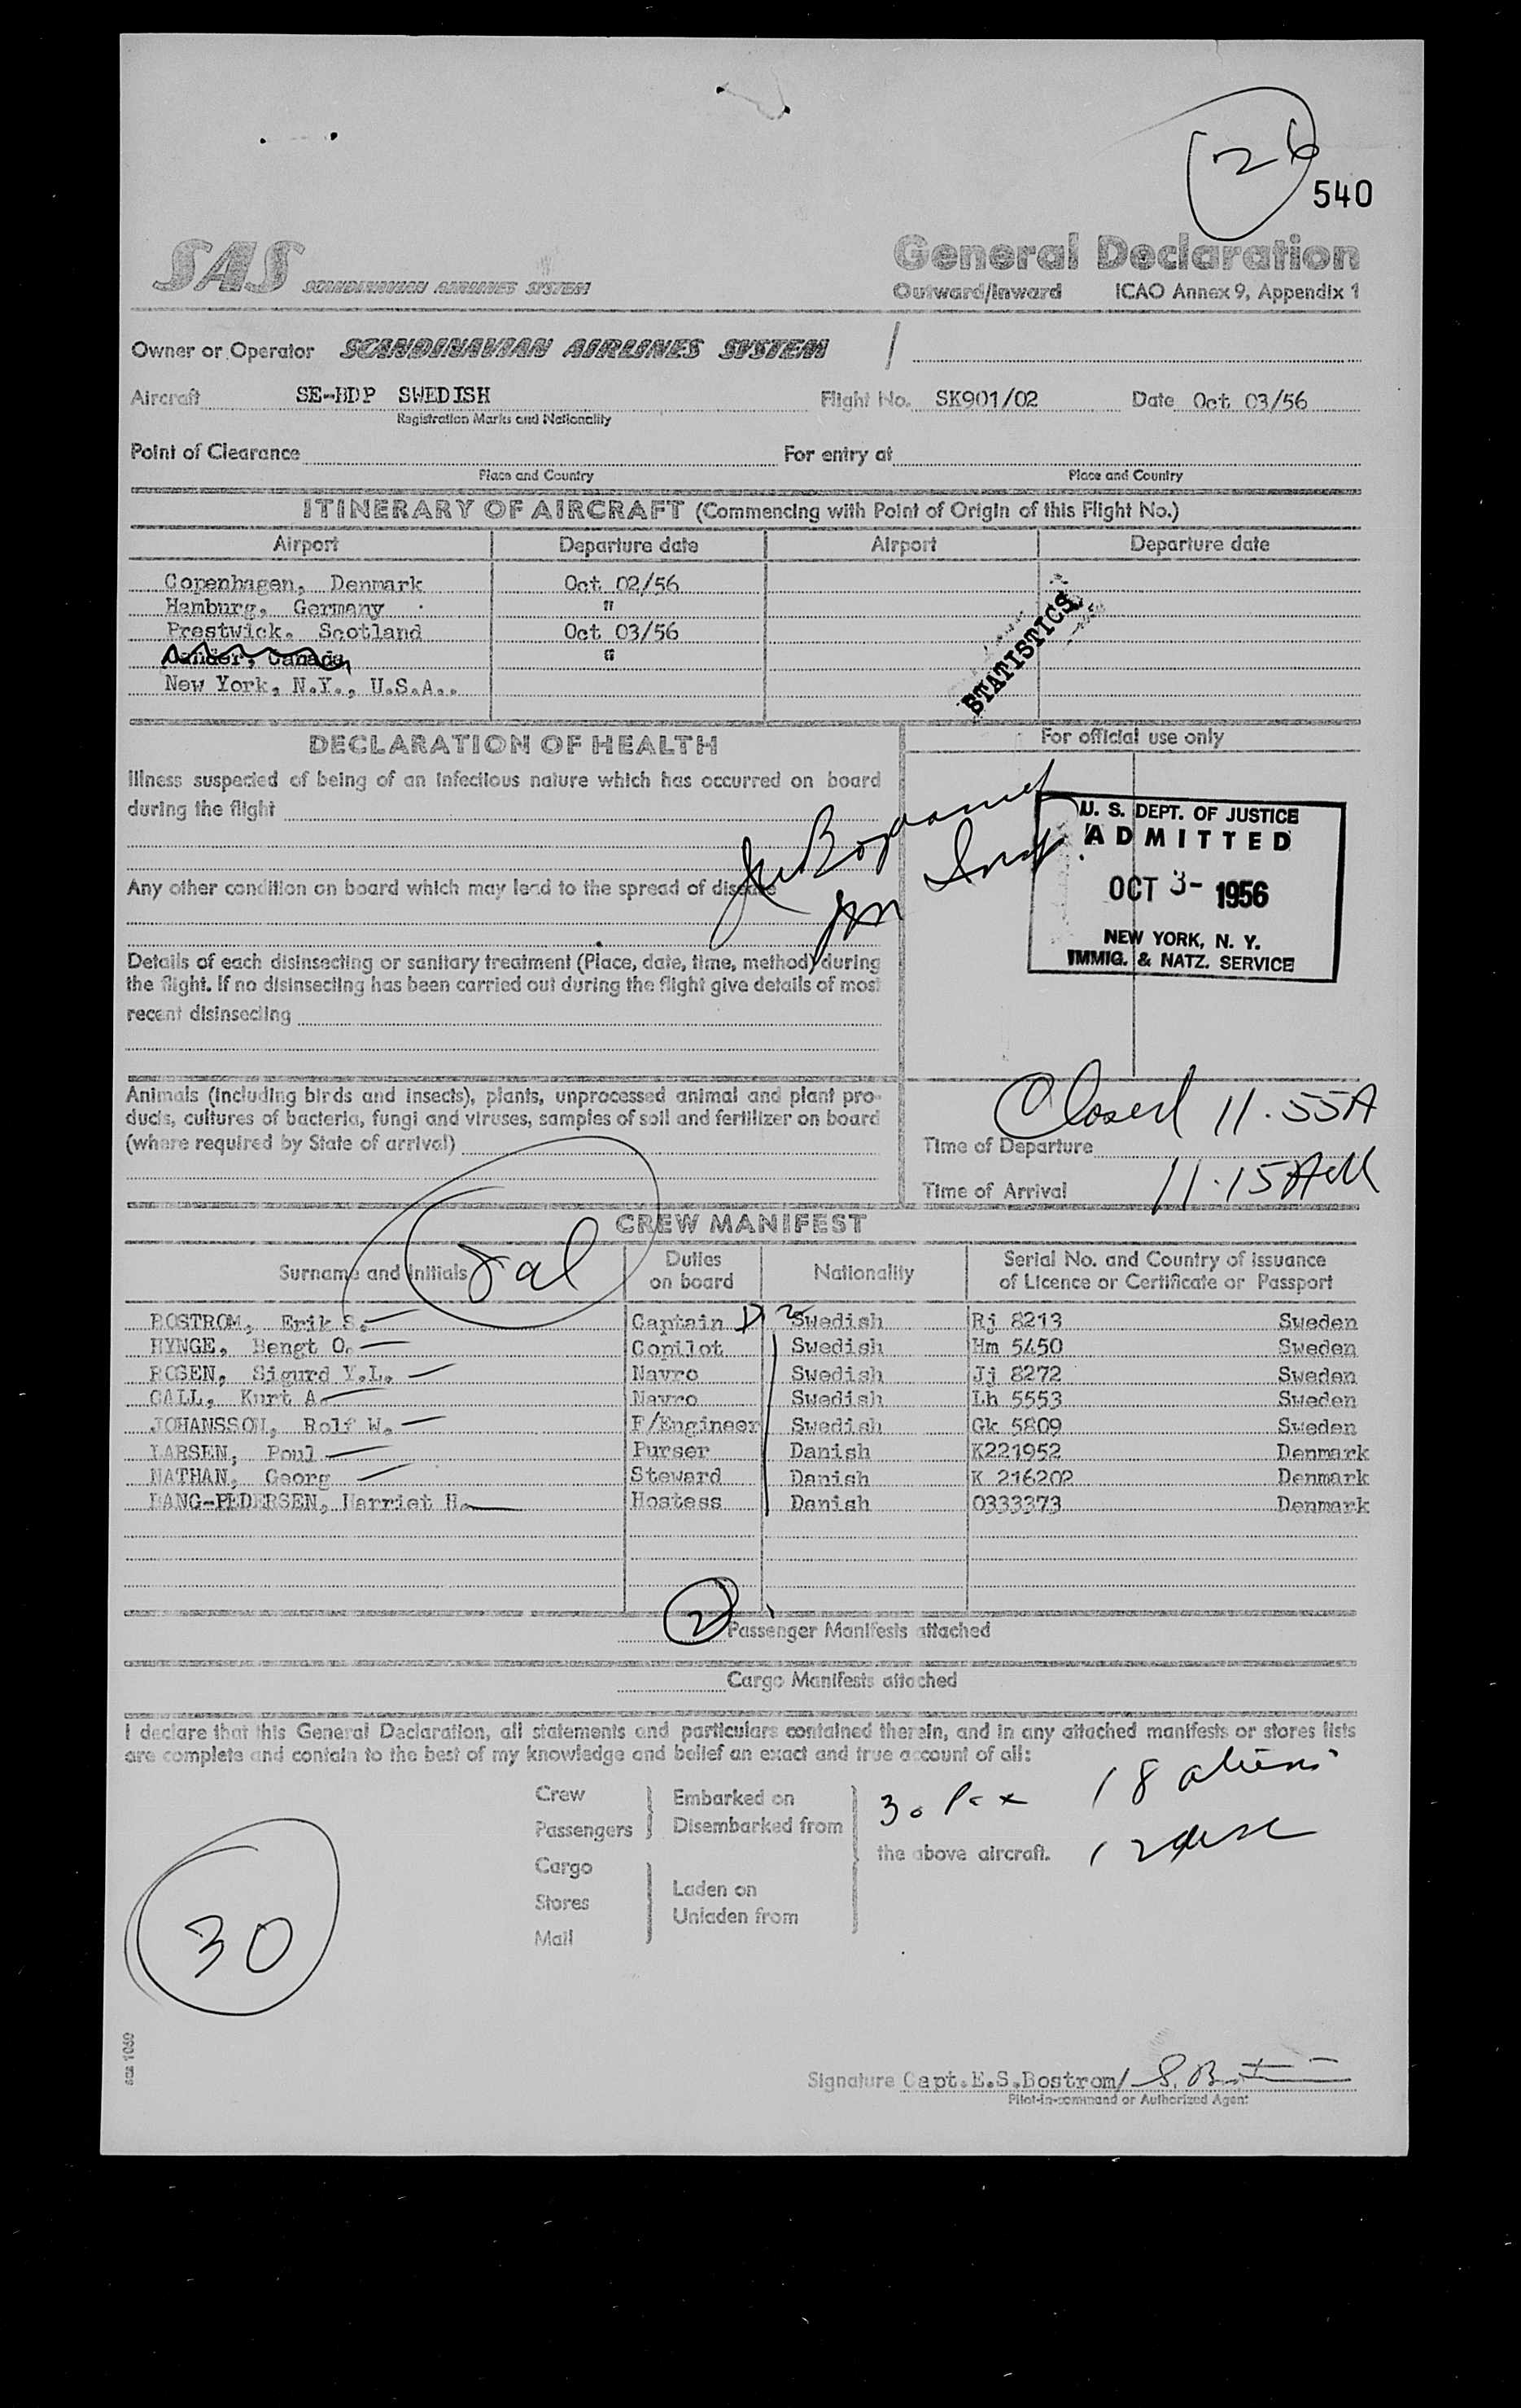 26
540
SAS SCANDINAVIAN AIRLINES SYSTEM
General Declaration
Outward/Inward ICAO Annex 9, Appendix 1
Owner or Operator SCANDINAVIAN AIRLINES SYSTEM /
Aircraft SE-BDP SWEDISH Flight No. SK901/02 Date Oct 03/56
Registration Marks and Nationality
Point of Clearance For entry at
Place and Country Place and Country
ITINERARY OF AIRCRAFT (Commencing with Point of Origin of this Flight No.)
Airport Departure date Airport Departure date
Copenhagen, Denmark Oct 02/56
Hamburg, Germany "
Prestwick. Scotland Oct 03/56
Gander, Canada "
New York, N.Y., U.S.A..
STATISTICS
DECLARATION OF HEALTH
For official use only
Illness suspected of being of an infectious nature which has occurred on board
during the flight
Any other condition on board which may lead to the spread of disease
Details of each disinsecting or sanitary treatment (Place, date, time, method) during
the flight. If no disinsecting has been carried out during the flight give details of most
recent disinsecting
U. S. DEPT. OF JUSTICE
ADMITTED
OCT 3- 1956
NEW YORK, N. Y.
IMMIG. & NATZ. SERVICE
Animals (including birds and insects), plants, unprocessed animal and plant pro-
ducts, cultures of bacteria, fungi and viruses, samples of soil and fertilizer on board
(where required by State of arrival)
Closed 11.55A
Time of Departure
Time of Arrival 11.15AM
CREW MANIFEST
8al
Surname and Initials Duties on board Nationality Serial No. and Country of issuance of Licence or Certificate or Passport
BOSTROM, Erik S. Captain D 2 Swedish Rj 8213 Sweden
HYNGE, Bengt O. Copilot Swedish Hm 5450 Sweden
ROSEN, Sigurd Y.L. Navro Swedish Jj 8272 Sweden
CALL, Kurt A. Navro Swedish Lh 5553 Sweden
JOHANSSON, Rolf W. F/Engineer Swedish Gk 5809 Sweden
LARSEN, Poul Purser Danish K221952 Denmark
NATHAN, Georg Steward Danish K 216202 Denmark
BANG-PEDERSEN, Harriet H. Hostess Danish 0333373 Denmark
2 Passenger Manifests attached
Cargo Manifests attached
I declare that this General Declaration, all statements and particulars contained therein, and in any attached manifests or stores lists
are complete and contain to the best of my knowledge and belief an exact and true account of all:
Crew
Passengers
Embarked on
Disembarked from
Cargo
Stores
Mail
Laden on
Unladen from
30 Pax 18 aliens
the above aircraft. 12
30
sas 1060
Signature Capt.E.S.Bostrom/
Pilot-in-command or Authorized Agent